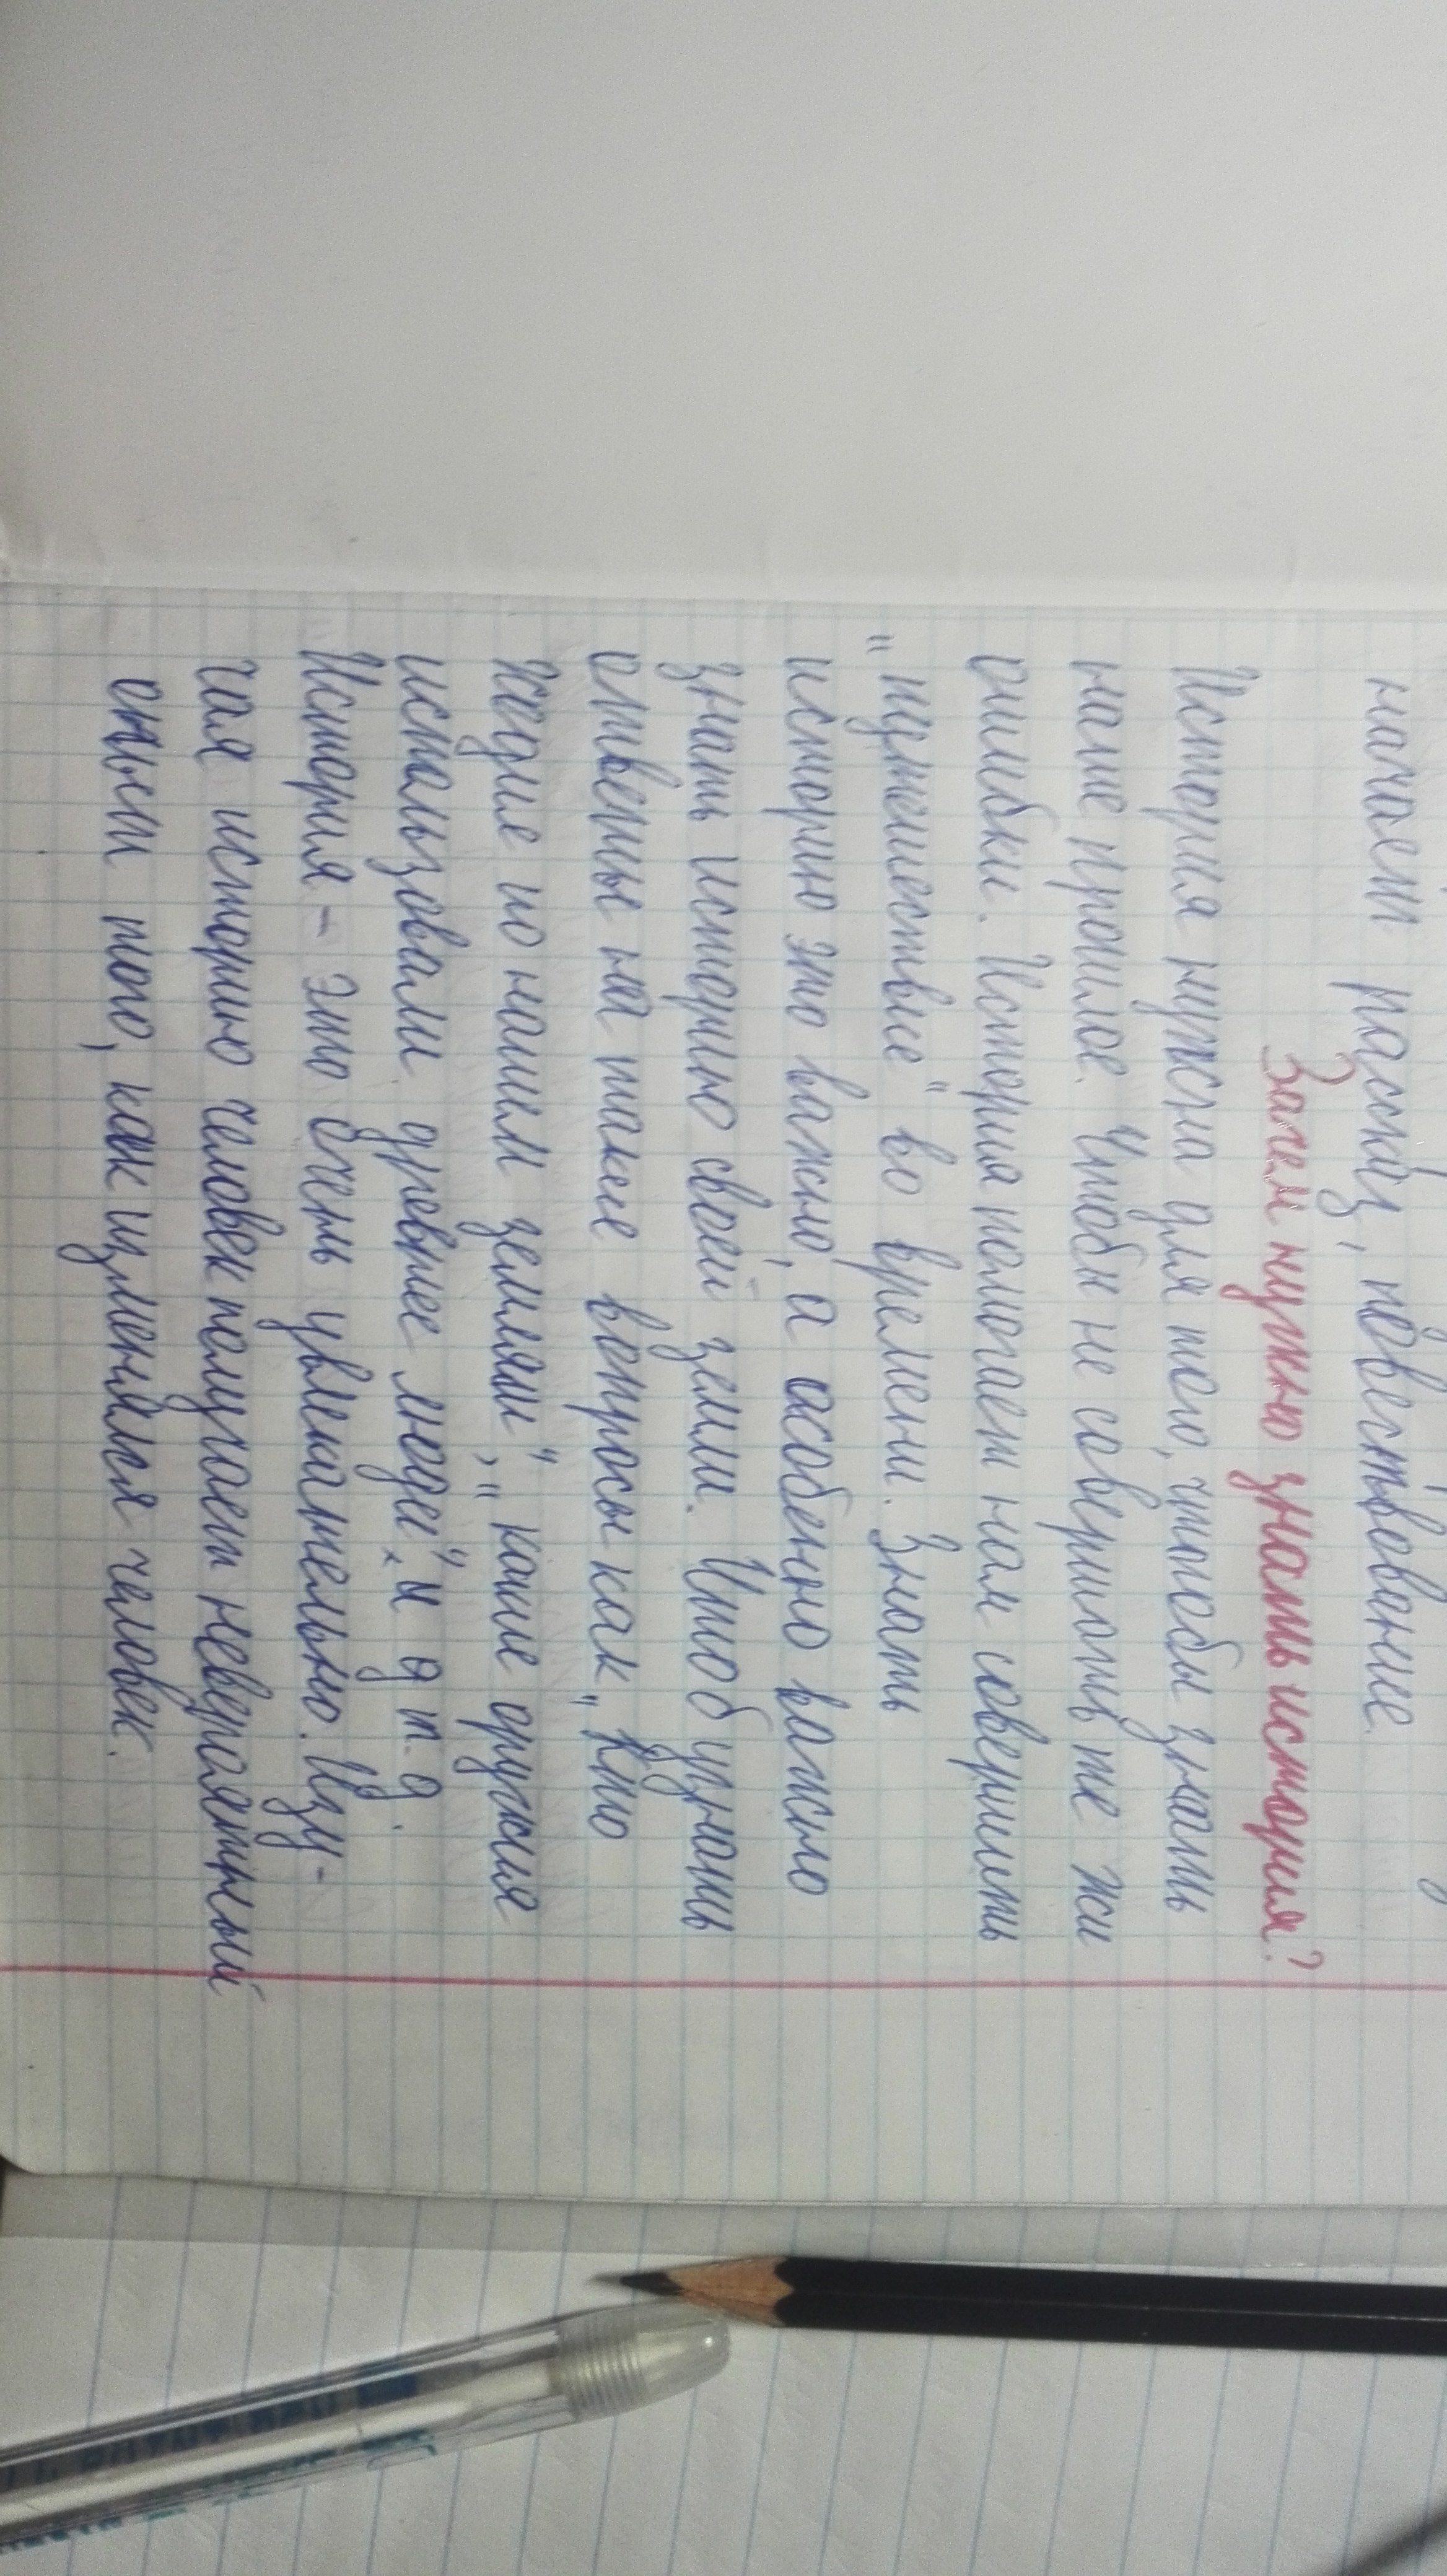 начает расказ, повествование.
Зачем нужно знать история?
История нужна для того, чтобы знать
наше прошлое. Чтобы не совершать те жи
ошибки. История помогает нам совершить
"путешествие" во времени. Знать
историю это важно, а особено важно
знать историю своей земли. Чтоб узнать
ответы на такие вопросы как „Кто
ходил по нашим землям", „какие оружия
использовали древнее люди" и д т. д.
История - это очень увлекательно. Изу-
чая историю человек получает невероятный
опыт того, как изменялся человек.